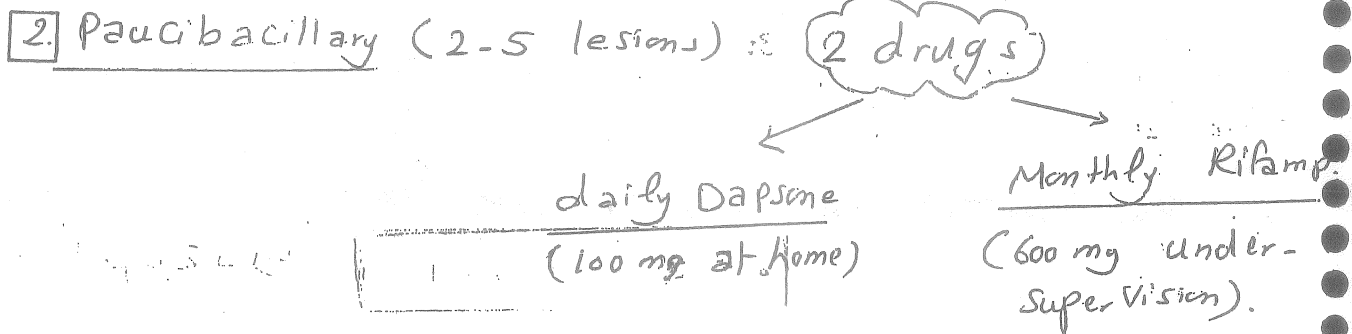 2. Paucibacillary (2-5 lesions) : 2 drugs
daily Dapsone
(100 mg at home)
Monthly Rifamp.
(600 mg under-
supervision).